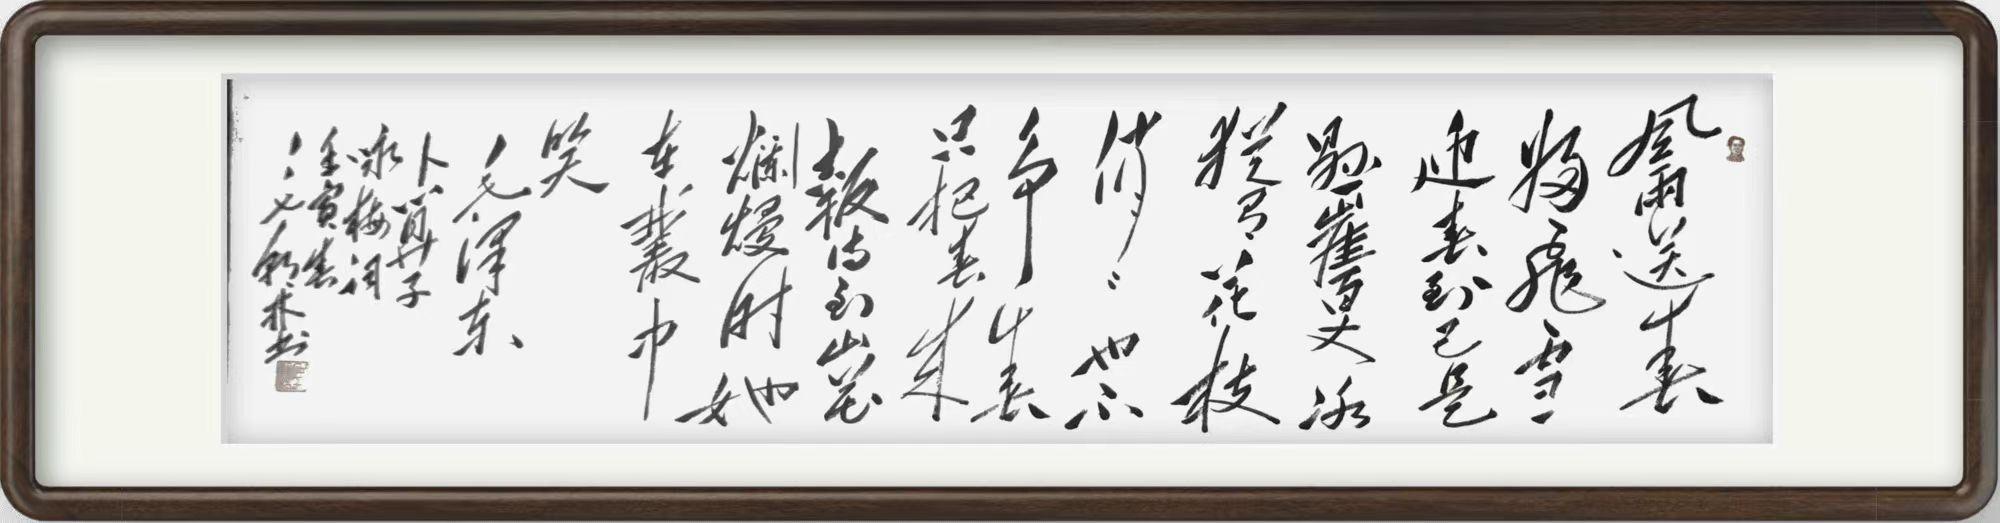 風雨送春
歸飛雪
迎春到已是
懸崖百丈冰
猶有花枝
俏〻也不
争春
只把春来
報待到山花
爛熳时她
在叢中
笑
毛澤东
卜算子
咏梅词
壬寅春
林书